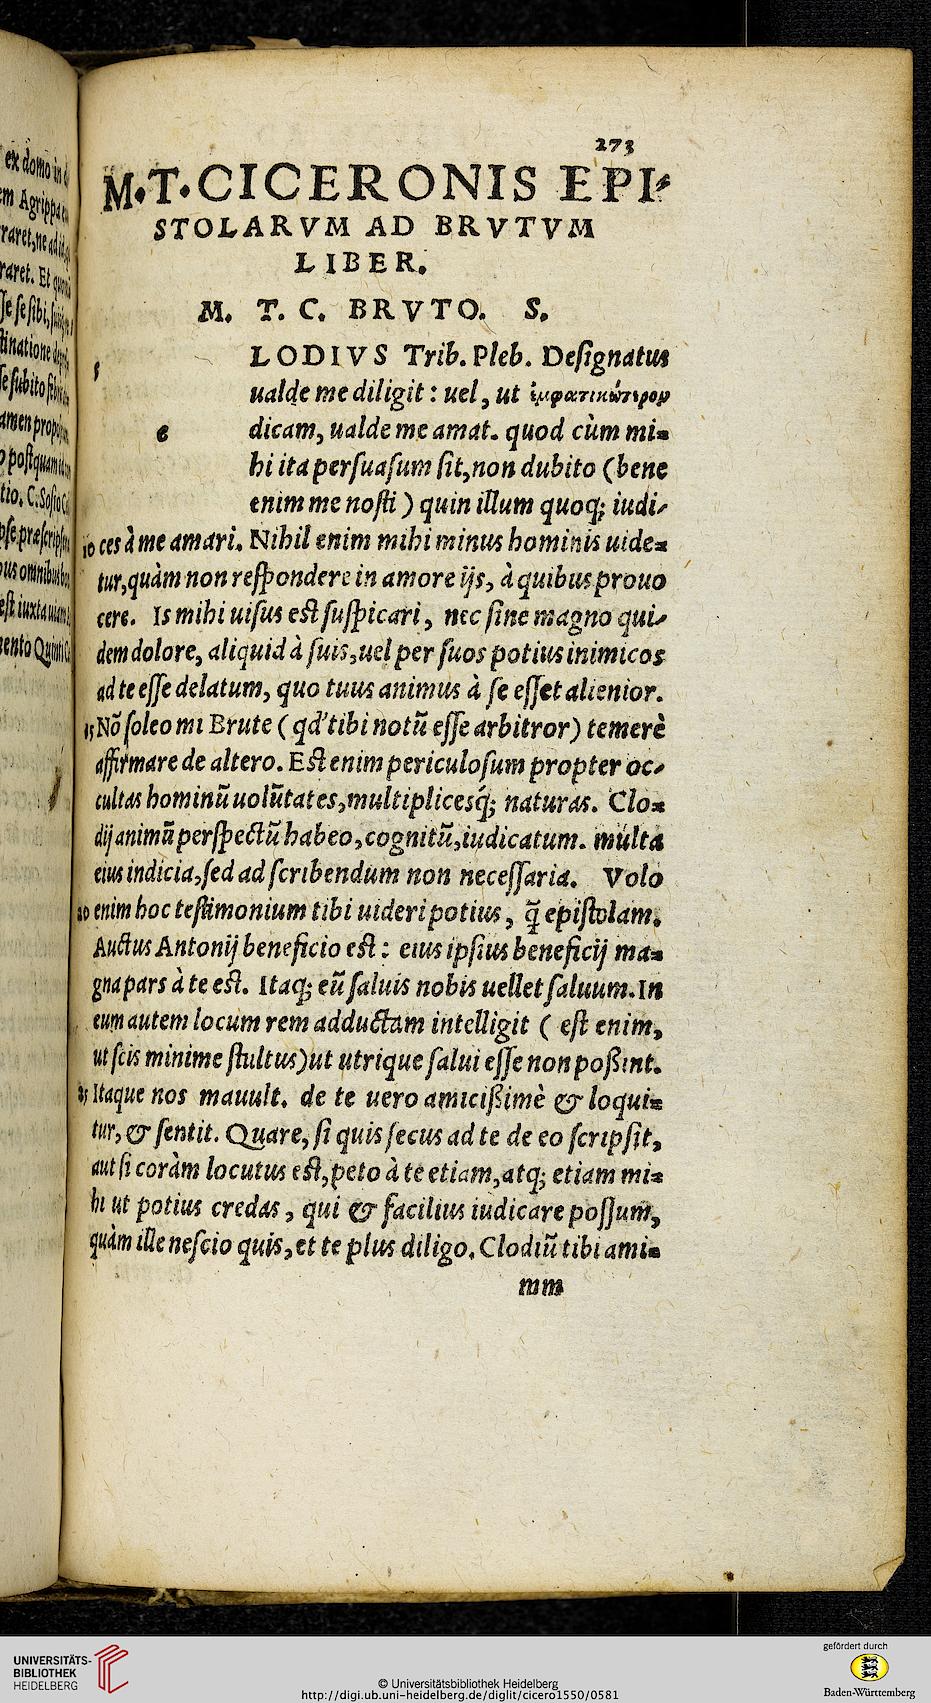 ex domo in
em Agrippa
raret, ne ad
raret. Et
se se sibi,
stinatione
se subito
amen
postquam
tio. C. Sosio
pse præscri
ous omnibus
est iuxta
mento Quinti
273
M.T.CICERONIS EPI⸗
STOLARVM AD BRVTVM
LIBER.
M. T. C. BRVTO. S.
5 LODIVS Trib. Pleb. Deſignatus
ualde me diligit : uel, ut ἐμφατικώτερον
c dicam, ualde me amat. quod cùm mi⸗
hi ita perſuaſum ſit, non dubito (bene
enim me noſti ) quin illum quoq; iudi⸗
10 ces à me amari. Nihil enim mihi minus hominis uide⸗
tur, quàm non reſpondere in amore ijs, à quibus prouo
cere. Is mihi uiſus eſt ſuſpicari, nec ſine magno qui⸗
dem dolore, aliquid à ſuis, uel per ſuos potius inimicos
ad te eſſe delatum, quo tuus animus à ſe eſſet alienior.
15 Nõ ſoleo mi Brute ( qd' tibi notũ eſſe arbitror) temerè
affirmare de altero. Eſt enim periculoſum propter oc⸗
cultas hominũ uolũtates, multiplicesq́; naturas. Clo⸗
dij animũ perſpectũ habeo, cognitũ, iudicatum. multa
eius indicia, ſed ad ſcribendum non neceſſaria. Volo
20 enim hoc teſtimonium tibi uideri potius, q̃ epiſtolam.
Auctus Antonij beneficio eſt : eius ipſius beneficij ma⸗
gna pars à te eſt. Itaq; eũ ſaluis nobis uellet ſaluum. In
eum autem locum rem adductam intelligit ( eſt enim,
ut ſcis minime ſtultus)ut utrique ſalui eſſe non poßint.
25 Itaque nos mauult. de te uero amicißimè & loqui⸗
tur, & ſentit. Quare, ſi quis ſecus ad te de eo ſcripſit,
aut ſi coràm locutus eſt, peto à te etiam, atq; etiam mi⸗
hi ut potius credas, qui & facilius iudicare poſſum,
quàm ille neſcio quis, et te plus diligo. Clodiũ tibi ami⸗
mm
UNIVERSITÄTS-
BIBLIOTHEK
HEIDELBERG
© Universitätsbibliothek Heidelberg
http://digi.ub.uni-heidelberg.de/diglit/cicero1550/0581
gefördert durch
Baden-Württemberg